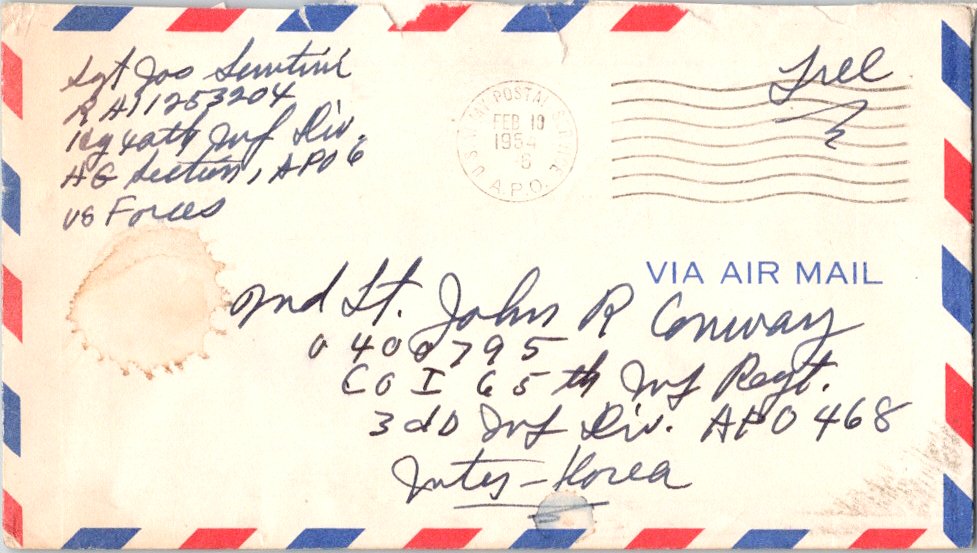 Sgt Joe
RA 11253204
Hq 40th Inf Div.
AG Section, APO 6
US Forces
U.S. ARMY POSTAL SERVICE
FEB 10
1954
6
A.P.O.
Free
VIA AIR MAIL
2nd Lt. John R Conway
0400795
CO I 65th Inf Regt.
3dD Inf Div. APO 468
Korea